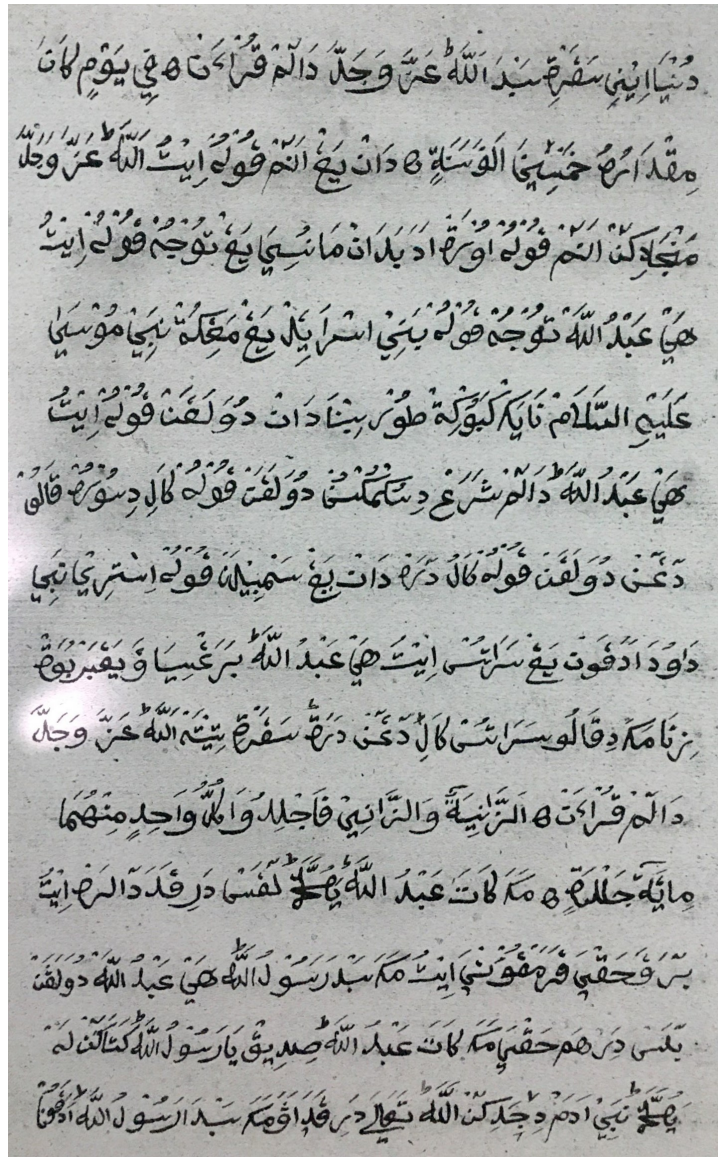 دُنْيَا اِيْنِي سَڤَرْةِ سَبْدَ اَللّٰهُ عَزَّ وَجَلَّ دَالَمْ قُرْاٰنَ ۞ فِي يَوْمٍ كَانَ
مِقْدَارُهُ خَمْسِيْنَ اَلْفَ سَنَةٍ ۞ دَانْ يَڠْ اَنَمْ ڤُوْلُهْ اِيْتُ اَللّٰهُ عَزَّ وَجَلَّ
مَنْجَادِكَنْ اَنَمْ ڤُوْلُهْ اُوْرَڠْ اَدَ ڤَدَانْ مَانُسِيَا يَڠْ تُوْجُهْ ڤُوْلُهْ اِيْتُ
هَيْ عَبْدُ اللّٰهْ تُوْجُهْ ڤُوْلُهْ بَنِي اِسْرَايِلْ يَڠْ مَڠِكُةْ نَبِيْ مُوْسَى
عَلَيْهِ السَّلَامْ نَايِكْ كَبُوْكِةْ طُوْرْسِيْنَا دَانْ دُوَ لَڤَنْ ڤُوْلُهْ اِيْتُ
هَيْ عَبْدُ اللّٰهْ دَالَمْ شَرَعْ دِسُكَتْكَنْ دُوَ لَڤَنْ ڤُوْلُهْ كَالِ دِسُوْرُهْ ڤَالُوْ
دَڠَنْ دُوَ لَڤَنْ ڤُوْلُهْ كَالِ دَرَهْ دَانْ يَڠْ سَمْبِيْلَنْ ڤُوْلُهْ اِسْتِرِيْ نَبِي
دَاوُدَ اَدَڤُوْنْ يَڠْ سَرَاتُسْ اِيْتُ هَيْ عَبْدُ اللّٰهْ بَرَڠْسِيَاڤَ يَڠْ بَرْبُوَةْ
زِنَا مَكَ دِڤَالُو سَرَاتُسْ كَالِ دَڠَنْ دَرَهْ سَڤَرْةِ تِيْتَهْ اَللّٰهُ عَزَّ وَجَلَّ
دَالَمْ قُرْاٰنَ ۞ اَلزَّانِيَةُ وَالزَّانِيْ فَاجْلِدُوْا كُلَّ وَاحِدٍ مِنْهُمَا
مِائَةَ جَلْدَةٍ ۞ مَكَ كَاتَ عَبْدُ اللّٰهْ يَا مُحَمَّدْ لَڤَسْ دَرِ ڤَدَ دَالَرَهْ اِيْتُ
بَرَڤَ حَقْڽَ ڤَرَمْڤُوَنْڽَ اِيْتُ مَكَ سَبْدَ رَسُوْلُ اللّٰهْ هَيْ عَبْدُ اللّٰهْ دُوَلَڤَنْ
بَلَسْ دِرْهَمْ حَقْڽَ مَكَ كَاتَ عَبْدُ اللّٰهْ صِدِيْقْ يَا رَسُوْلُ اللّٰهْ كَتَاكَنْ لَهْ
يَا مُحَمَّدْ نَبِيْ اٰدَمْ دِجَدِكَنْ اَللّٰهْ تَعَالٰى دَرِ ڤَدَ اَڤَ مَكَ سَبْدَ رَسُوْلُ اللّٰهْ اَدَڤُوْنْ